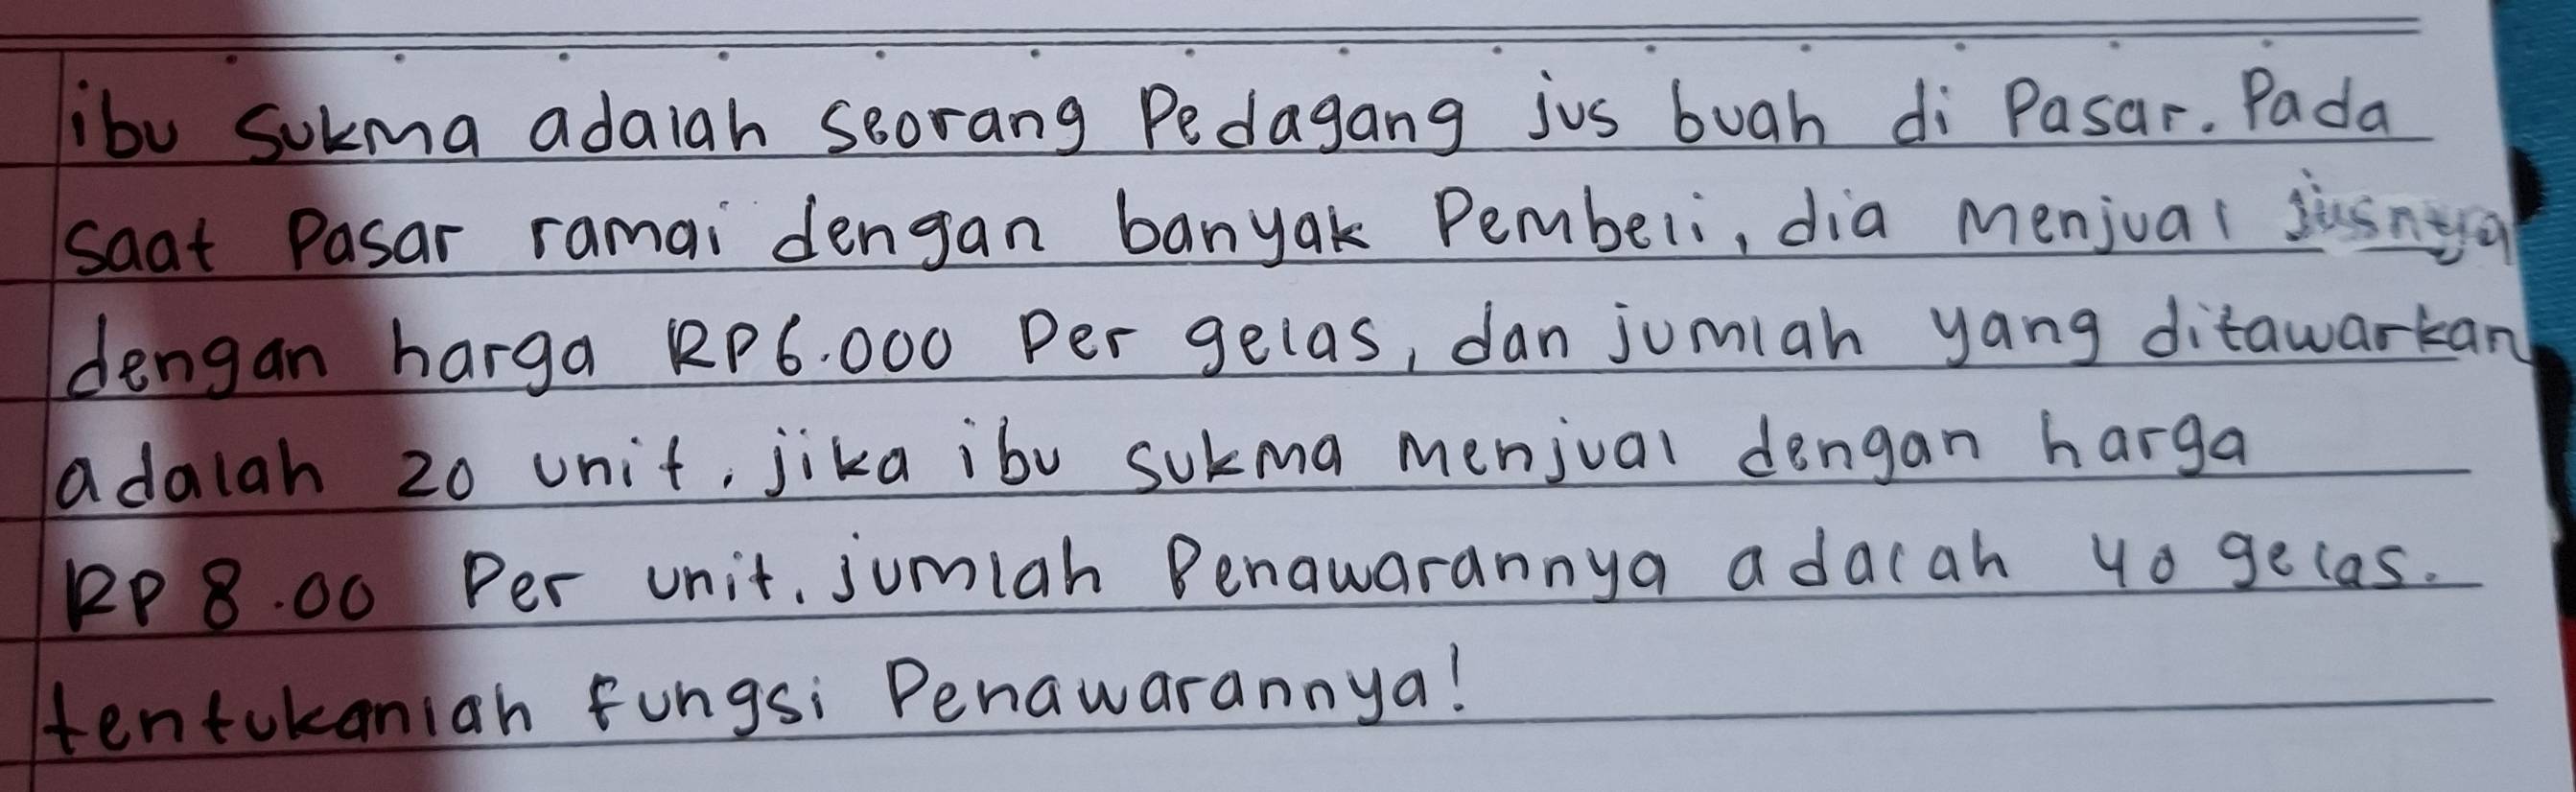 ibu sukma adalah seorang Pedagang jus buah di Pasar. Pada
saat Pasar ramai dengan banyak Pembeli, dia menjual jusnya
dengan harga RP6.000 Per gelas, dan jumlah yang ditawarkan
adalah 20 unit. jika ibu sukma menjual dengan harga
RP 8.00 Per unit. jumlah Penawarannya adalah 40 gelas.
tentukanlah fungsi Penawarannya!